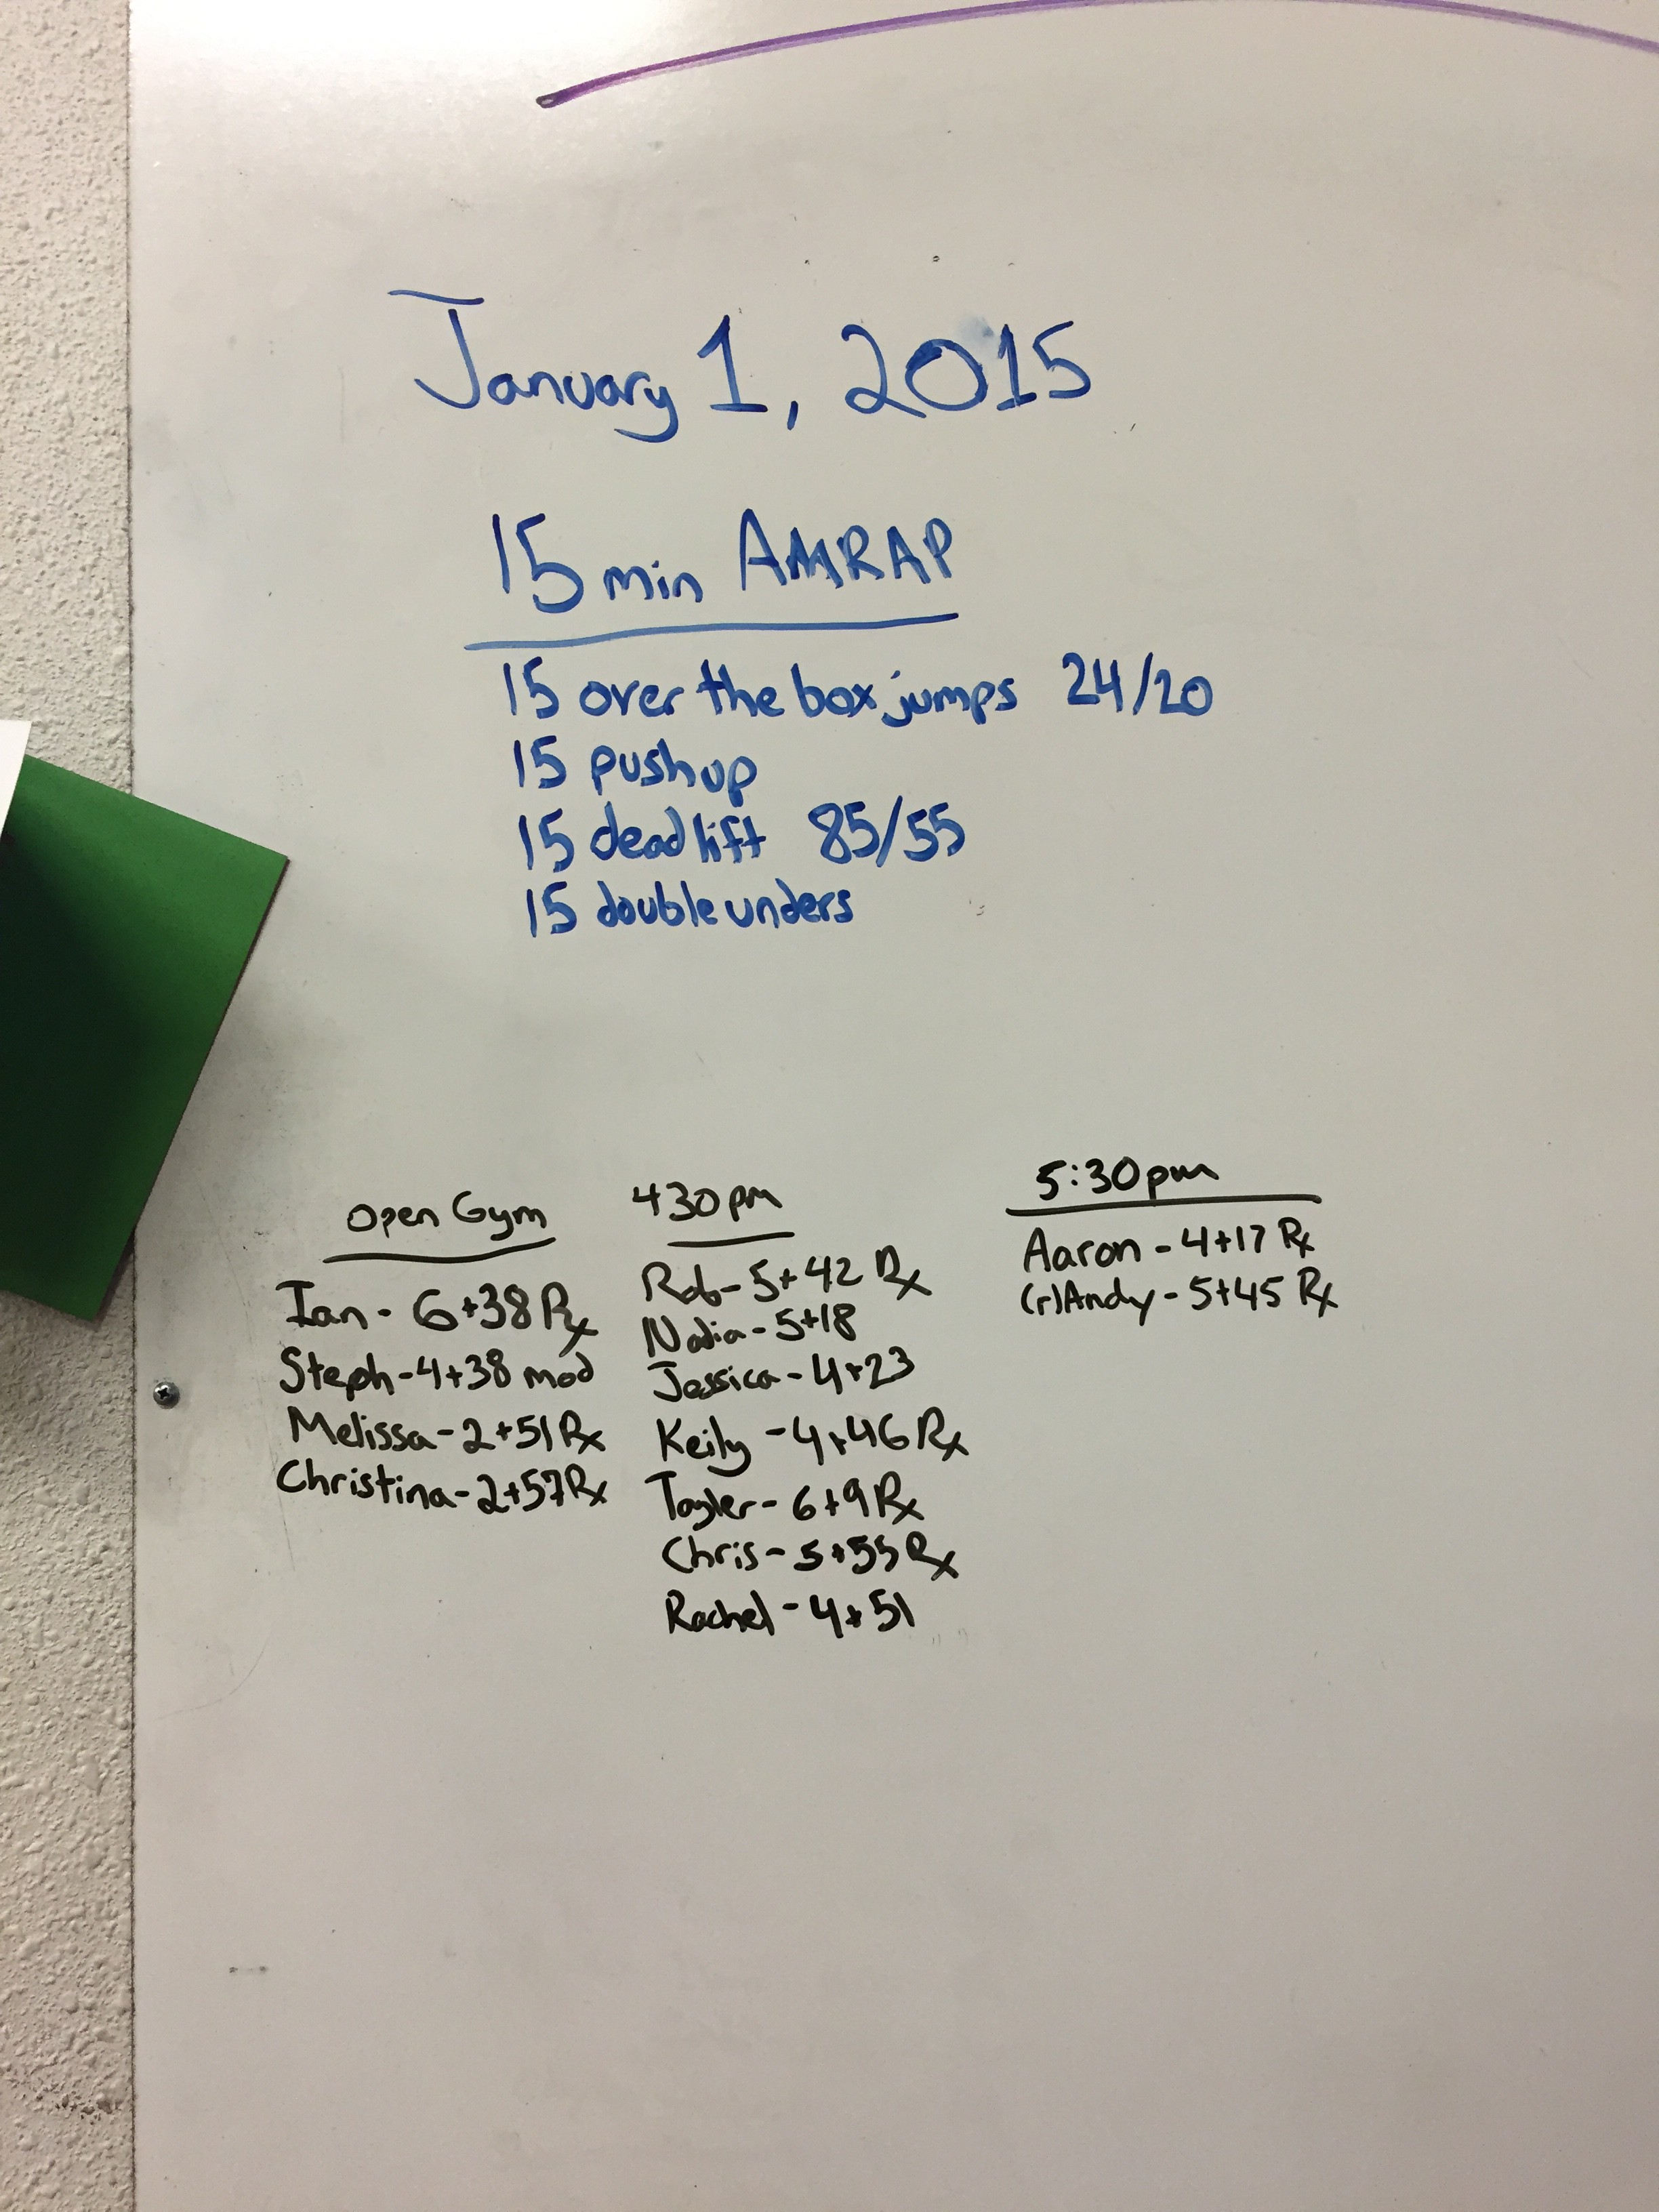 January 1, 2015
15 min AMRAP
15 over the box jumps 24/20
15 pushup
15 deadlift 85/55
15 double unders
Open Gym
Ian - 6+38 Rx
Steph - 4+38 mod
Melissa - 2+51 Rx
Christina - 2+57 Rx
430 pm
Rob - 5+42 Rx
Nadia - 5+18
Jessica - 4+23
Keily - 4+46 Rx
Tayler - 6+9 Rx
Chris - 5+55 Rx
Rachel - 4+51
5:30pm
Aaron - 4+17 Rx
(r)Andy - 5+45 Rx